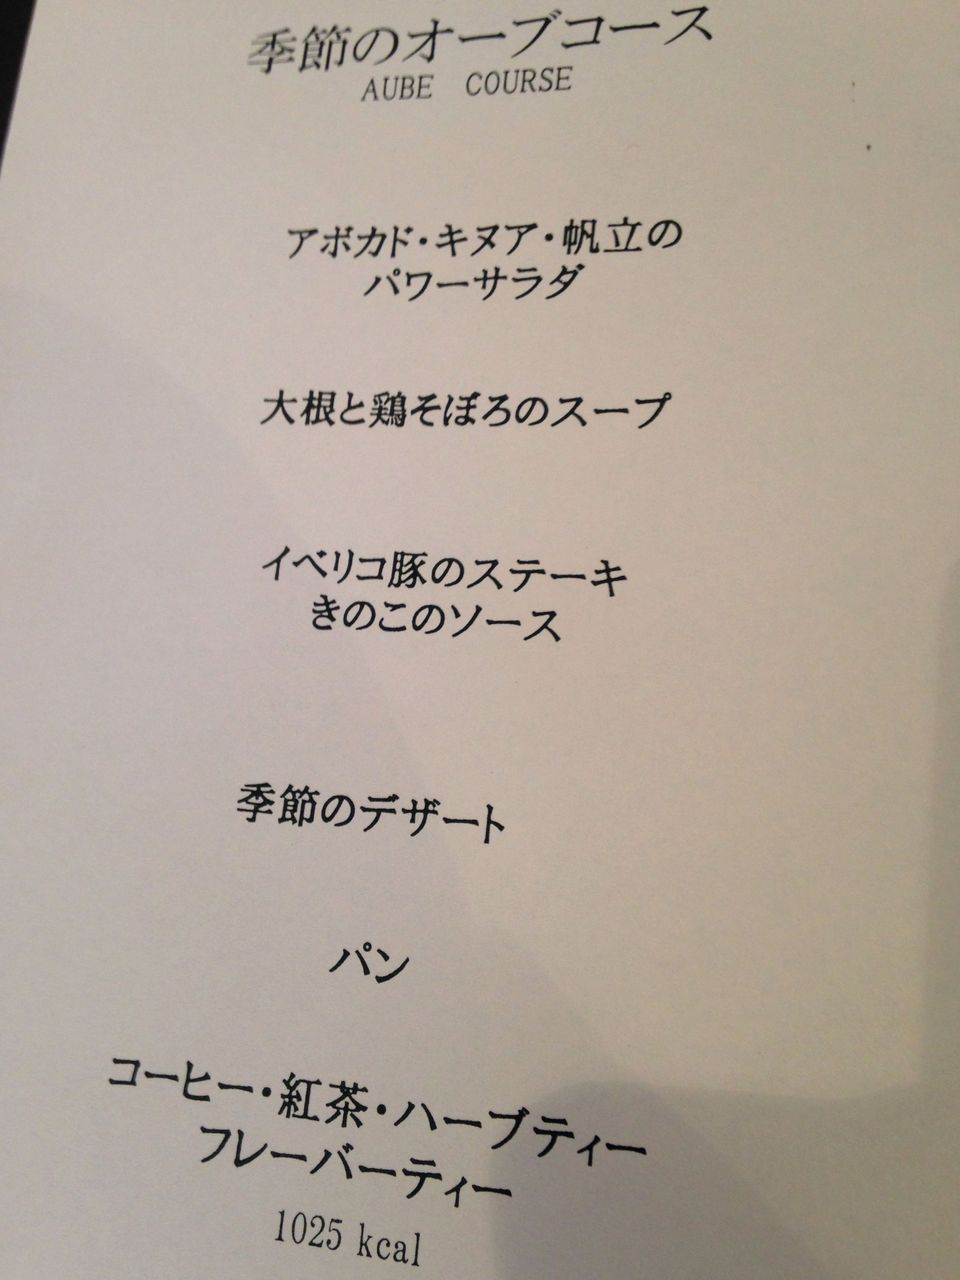 季節のオーブコース
AUBE COURSE
アボカド・キヌア・帆立の
パワーサラダ
大根と鶏そぼろのスープ
イベリコ豚のステーキ
きのこのソース
季節のデザート
パン
コーヒー・紅茶・ハーブティー
フレーバーティー
1025 kcal